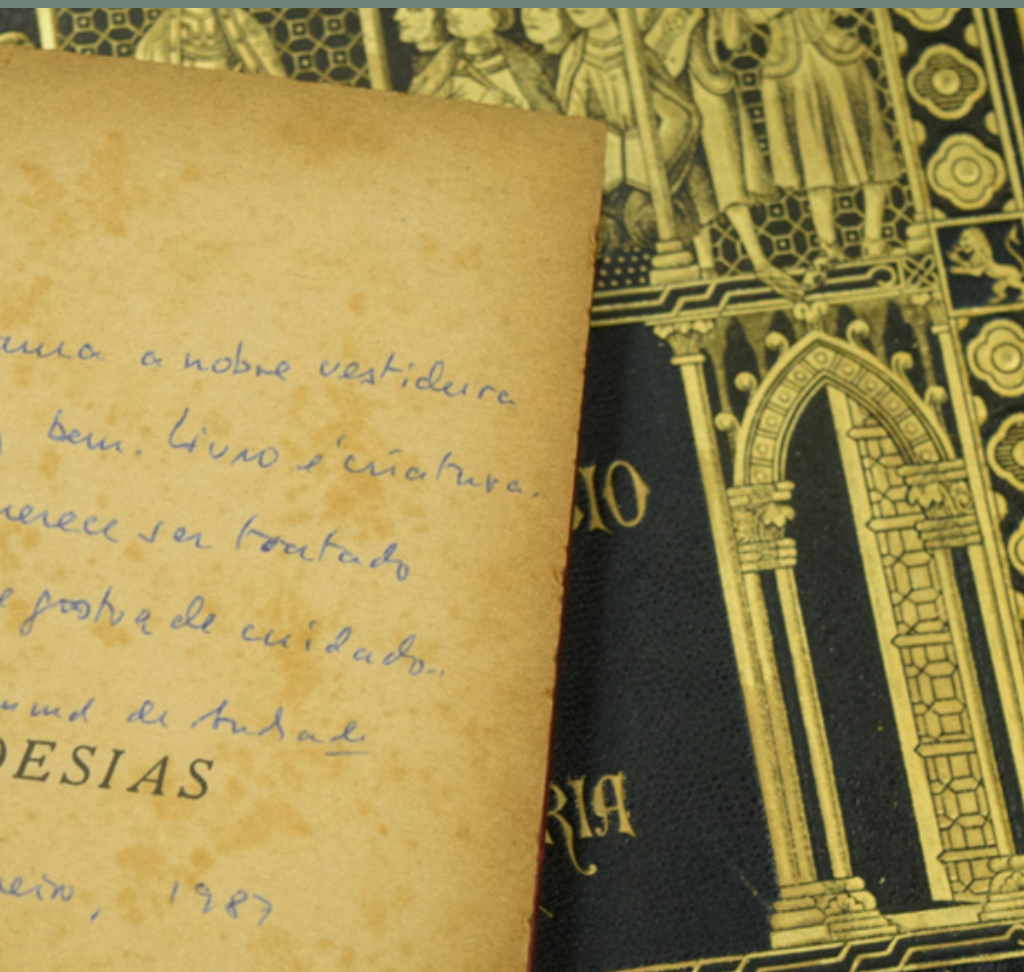 a nobre vestidura
bem. Livro é criatura.
merece ser tratado
e gosta de cuidado.
de Andrade
OESIAS
1987
CIO
RIA